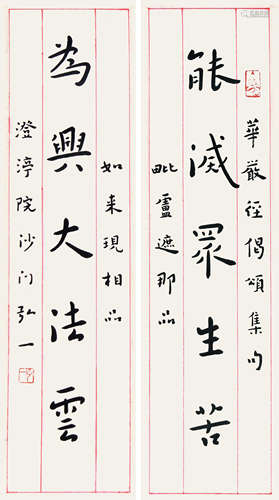 華嚴徑偈頌集句
能滅眾生苦
毗盧遮那品
如来現相品
為興大法雲
澄渟院沙门弘一